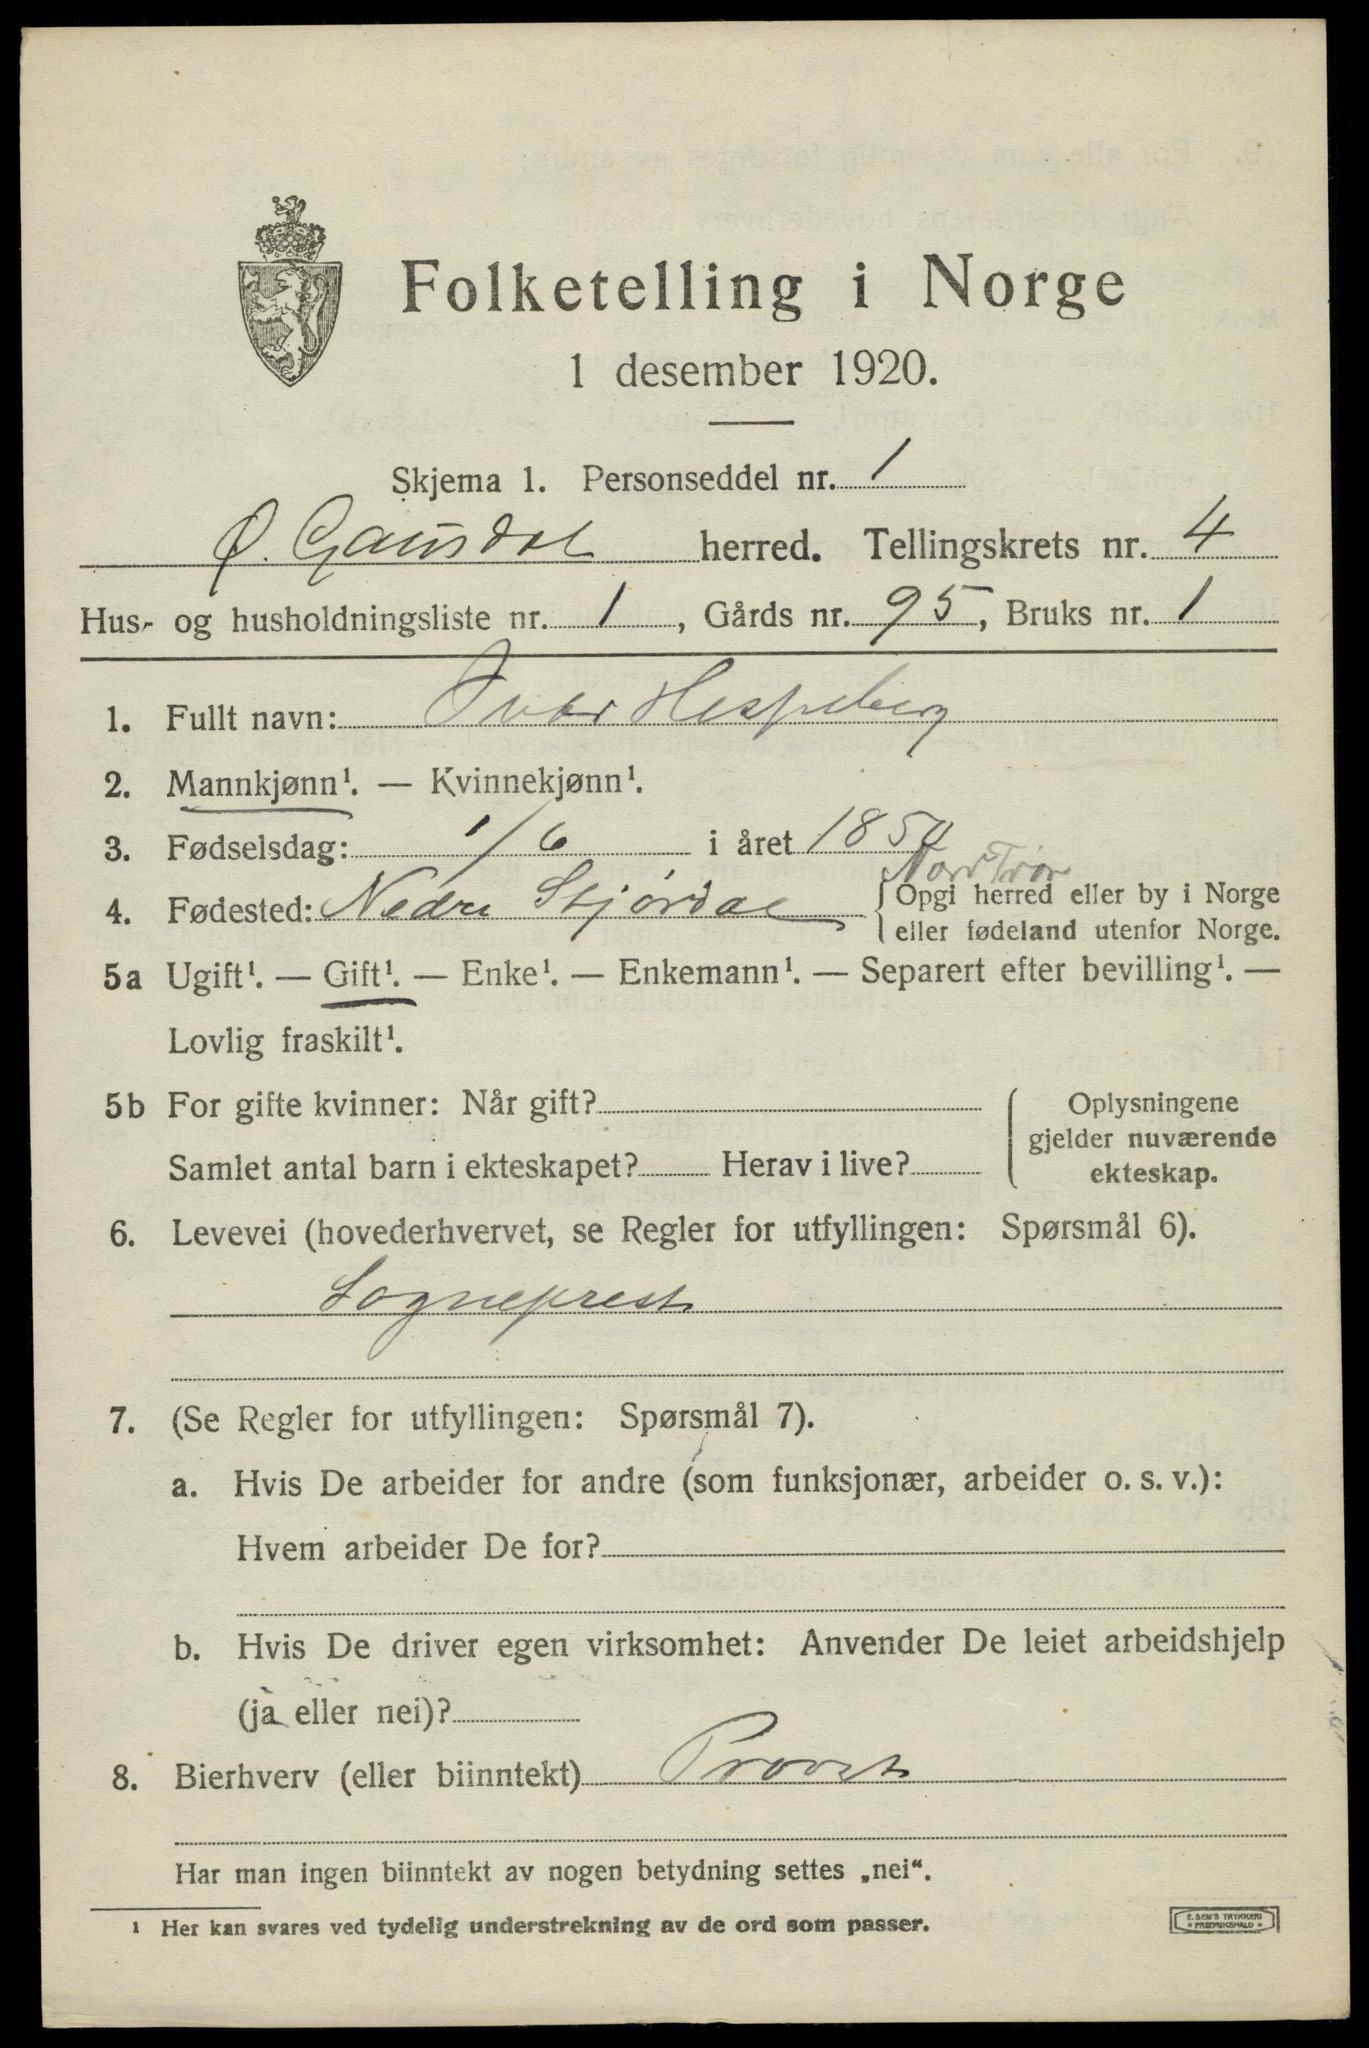 Folketelling i Norge
1 desember 1920.
Skjema 1. Personseddel nr. 1
Ø. Gausdal herred. Tellingskrets nr. 4
Hus- og husholdningsliste nr. 1, Gårds nr. 95, Bruks nr. 1
1. Fullt navn: Ivar Hespeberg
2. Mannkjønn¹. — Kvinnekjønn¹.
3. Fødselsdag: 1/6 i året 1850
Nord Trön
4. Fødested: Nedre Stjørdal { Opgi herred eller by i Norge
eller fødeland utenfor Norge.
5a Ugift¹. — Gift¹. — Enke¹. — Enkemann¹. — Separert efter bevilling¹. —
Lovlig fraskilt¹.
5b For gifte kvinner: Når gift?
Samlet antal barn i ekteskapet? Herav i live?
Oplysningene
gjelder nuværende
ekteskap.
6. Levevei (hovederhvervet, se Regler for utfyllingen: Spørsmål 6).
Sogneprest
7. (Se Regler for utfyllingen: Spørsmål 7).
a. Hvis De arbeider for andre (som funksjonær, arbeider o. s. v.):
Hvem arbeider De for?
b. Hvis De driver egen virksomhet: Anvender De leiet arbeidshjelp
(ja eller nei)?
8. Bierhverv (eller biinntekt) Provst
Har man ingen biinntekt av nogen betydning settes „nei“.
¹ Her kan svares ved tydelig understrekning av de ord som passer.
E. SEM'S TRYKKERI
FREDRIKSHALD